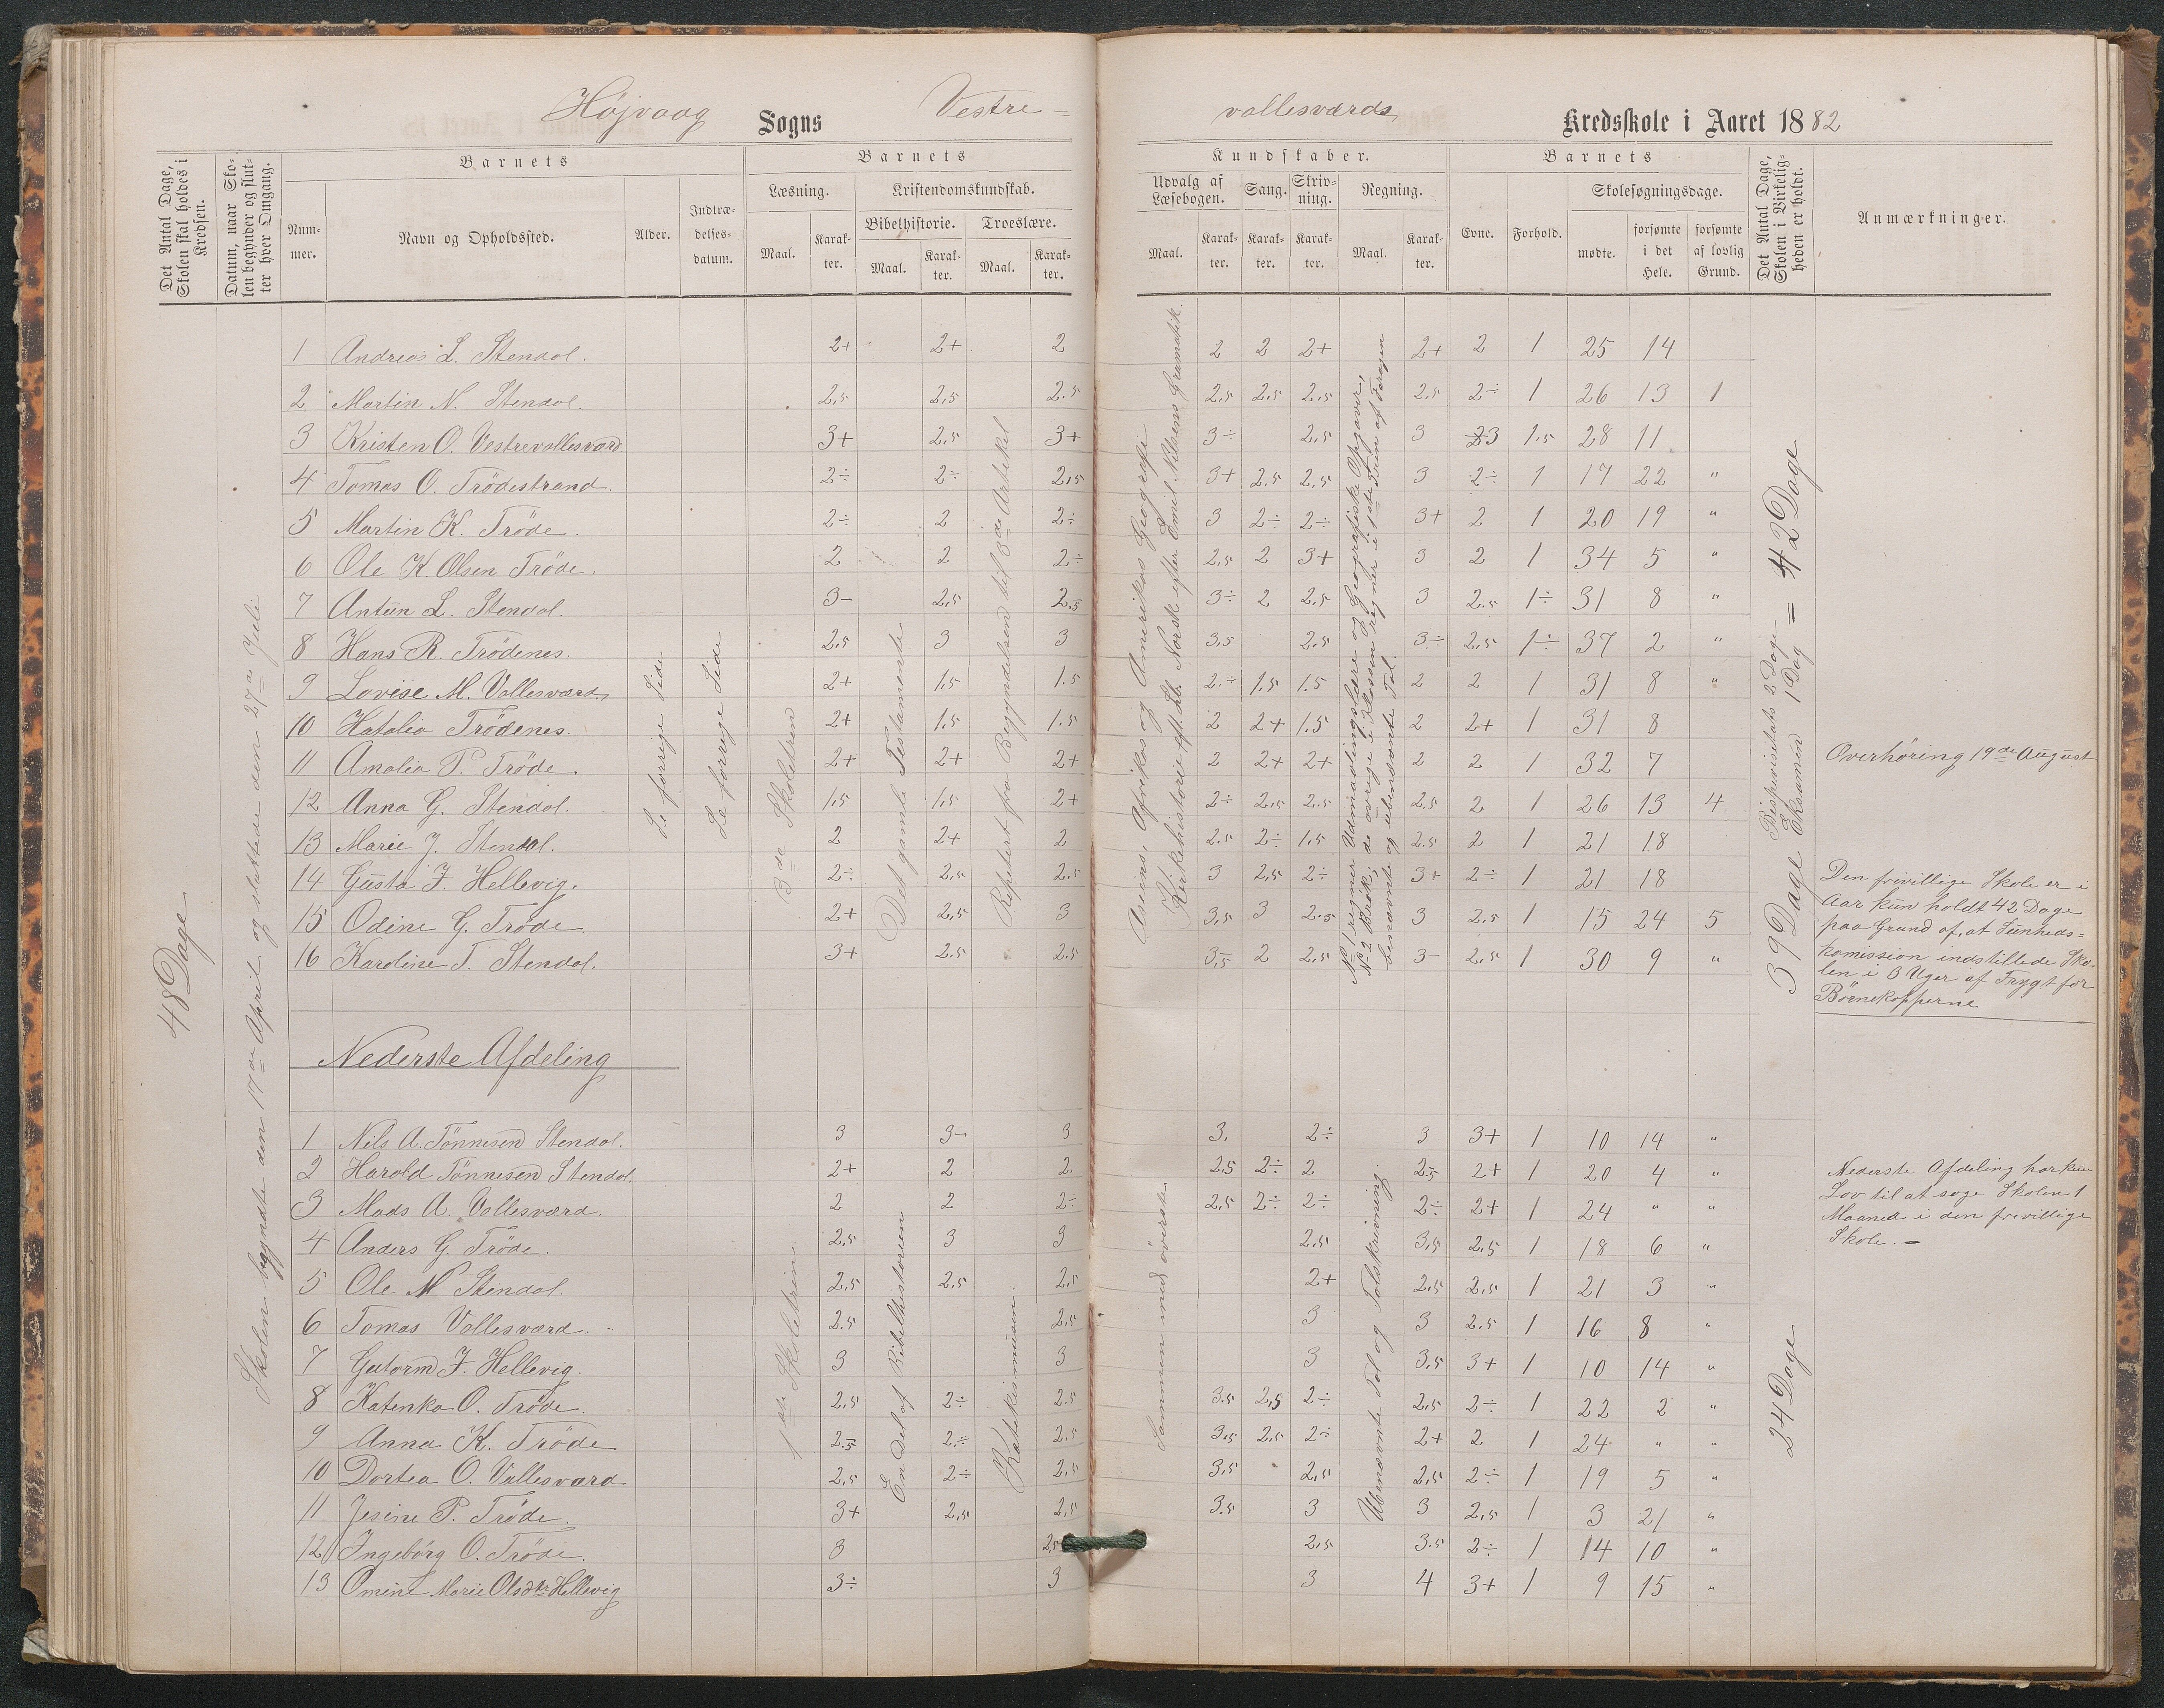 Højvaag Sogns Vestre=
vallesværds Kredsskole i Aaret 1882
Det Antal Dage, Skolen skal holdes i Kredsen.
Datum, naar Skolen begynder og slutter hver Omgang.
Barnets
Nummer.
Navn og Opholdssted.
Alder.
Indtrædelsesdatum.
Barnets
Læsning.
Maal. Karakter.
Kristendomskundskab.
Bibelhistorie. Troeslære.
Maal. Karakter. Maal. Karakter.
Kundskaber.
Udvalg af Læsebogen. Sang. Skrivning. Regning.
Maal. Karakter. Karakter. Karakter. Maal. Karakter.
Barnets
Evne. Forhold.
Skolesøgningsdage.
mødte. forsømte i det Hele. forsømte af lovlig Grund.
Det Antal Dage, Skolen i Virkeligheden er holdt.
Anmærkninger.
48 Dage
Skolen begyndte den 17de April og sluttede den 27de Juli
Se forrige Side
Se forrige Side
3de Skoletrin
Det gamle Testamente
Repetert fra Begyndelsen til 3de Artikel
Asiens, Afrikas og Amerikas Geografi
Kirkehistorie eft. Lb. Norsk efter Emil Nilsens Gramatik.
No 1 regner Udmaalingslære og Geografiske Opgaver,
No 2 Brøk, de øvrige i Klassen regner i 1ste Trin af Foragen
benævnte og ubenævnte Tal.
1 Andreas L. Stendal. 2+ 2+ 2 2 2 2+ 2+ 2 1 25 14
2 Martin N. Stendal. 2,5 2,5 2.5 2,5 2,5 2,5 2.5 2÷ 1 26 13 1
3 Kristen O. Vestrevallesværd 3+ 2,5 3+ 3÷ 2,5 3 3 1.5 28 11
4 Tomas O. Trödestrand. 2÷ 2÷ 2,5 3+ 2.5 2.5 3 2÷ 1 17 22 "
5 Martin K. Tröde. 2÷ 2 2÷ 3 2÷ 2÷ 3+ 2 1 20 19 "
6 Ole K. Olsen Tröde. 2 2 2÷ 2,5 2 3+ 3 2 1 34 5 "
7 Antün L. Stendal. 3- 2,5 2.5 3÷ 2 2.5 3 2.5 1÷ 31 8 "
8 Hans R. Trödenes. 2,5 3 3 3,5 2.5 3÷ 2,5 1÷ 37 2 "
9 Lovise M. Vallesværd. 2+ 1.5 1.5 2÷ 1.5 1.5 2 2 1 31 8 "
10 Hatalia Trödenes. 2+ 1.5 1.5 2 2+ 1.5 2 2+ 1 31 8
11 Amalia P. Tröde. 2+ 2+ 2+ 2 2+ 2+ 2 2 1 32 7
12 Anna G. Stendal. 1,5 1,5 2+ 2÷ 2,5 2.5 2.5 2 1 26 13 4
13 Marie J. Stendal. 2 2+ 2 2.5 2÷ 1,5 2.5 2 1 21 18
14 Gusta F. Hellevig. 2÷ 2,5 2.5 3 2,5 2÷ 3+ 2÷ 1 21 18
15 Odine G. Tröde 2+ 2,5 3 3,5 3 2.5 3 2,5 1 15 24 5
16 Karoline T. Stendal. 3+ 2.5 2.5 3,5 2 2,5 3- 2,5 1 30 9 "
39 Dage
Bispevisitats 2 Dage
Eksamen 1 Dag
= 42 Dage
Overhøring 19de August
Den frivillige Skole er i
Aar kun holdt 42 Dage
paa Grund af, at Sunheds=
komission indstillede Sko-
len i 3 Uger af Frygt for
Börnekopperne
Nederste Afdeling
1ste Skoletrin.
En Del af Bibelhistorien
Katekismusen.
Sammen med øverste.
Ubenævnte Tal og Talskrivning.
1 Nils A. Tönnesen Stendal. 3 3- 3 3. 2÷ 3 3+ 1 10 14 "
2 Harald Tönnesen Stendal. 2+ 2 2. 2,5 2÷ 2 2,5 2+ 1 20 4 "
3 Mads A. Vallesværd. 2 2 2÷ 2,5 2÷ 2÷ 2÷ 2+ 1 24 " "
4 Anders G. Tröde. 2,5 3 3 2,5 3,5 2.5 1 18 6 "
5 Ole M Stendal. 2,5 2,5 2,5 2+ 2,5 2,5 1 21 3 "
6 Tomas Vallesværd. 2.5 2,5 3 3 2.5 1 16 8 "
7 Gutorm F. Hellevig. 3 3 3 3,5 3+ 1 10 14 "
8 Katenka O. Tröde. 2,5 2÷ 2.5 3.5 2,5 2÷ 2,5 2÷ 1 22 2 "
9 Anna K. Tröde 2.5 2÷ 2.5 3,5 2,5 2÷ 2+ 2 1 24 " "
10 Dortea O. Vallesværd 2,5 2÷ 2,5 3,5 2,5 2,5 2÷ 1 19 5 "
11 Jesine P. Tröde. 3+ 2,5 2,5 3.5 3 3 2,5 1 3 21 "
12 Ingeborg O. Tröde. 3 2,5 2,5 3.5 2÷ 1 14 10 "
13 Omine Marie Olsdtr Hellevig 3÷ 3 3 4 3+ 1 9 15 "
24 Dage
Nederste Afdeling har kun
Lov til at søge Skolen 1
Maaned i den frivillige
Skole. —